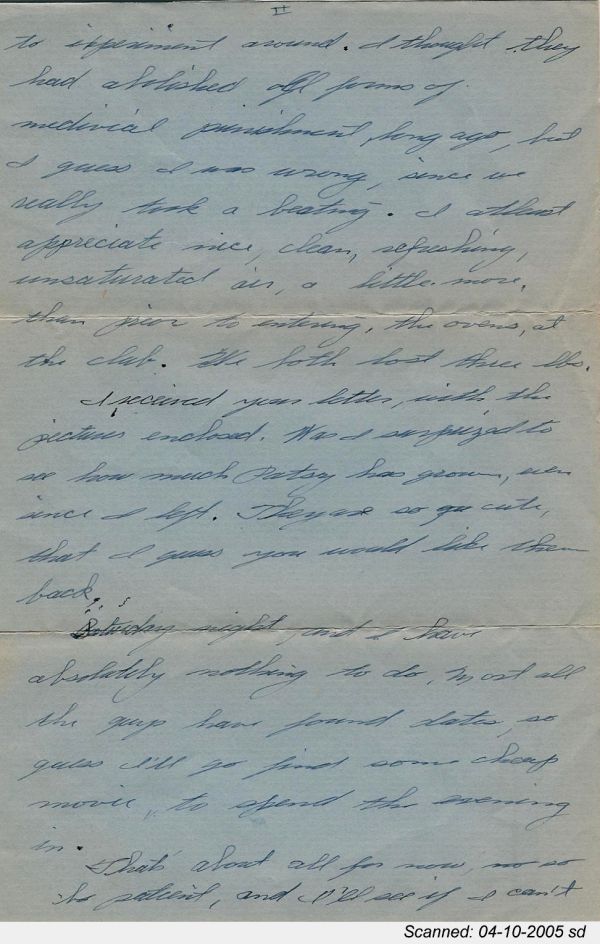 II
to experiment around. I thought they
had abolished all forms of
medivial punishment, long ago, but
I guess I was wrong, since we
really took a beating. I atleast
appreciate nice, clean, refreshing,
unsaturated air, a little more,
than prior to entering, the ovens, at
the club. We both lost three lbs.
I received your letter, with the
pictures enclosed. Was I surprized to
see how much Patsy has grown, even
since I left. They are so cute,
that I guess you would like them
back.
Saturday night, and I have
absolutely nothing to do, Most all
the guys have found dates, so
guess I'll go find some cheap
movie, to spend the evening
in.
That's about all for now, so
be patient, and I'll see if I can't
Scanned: 04-10-2005 sd